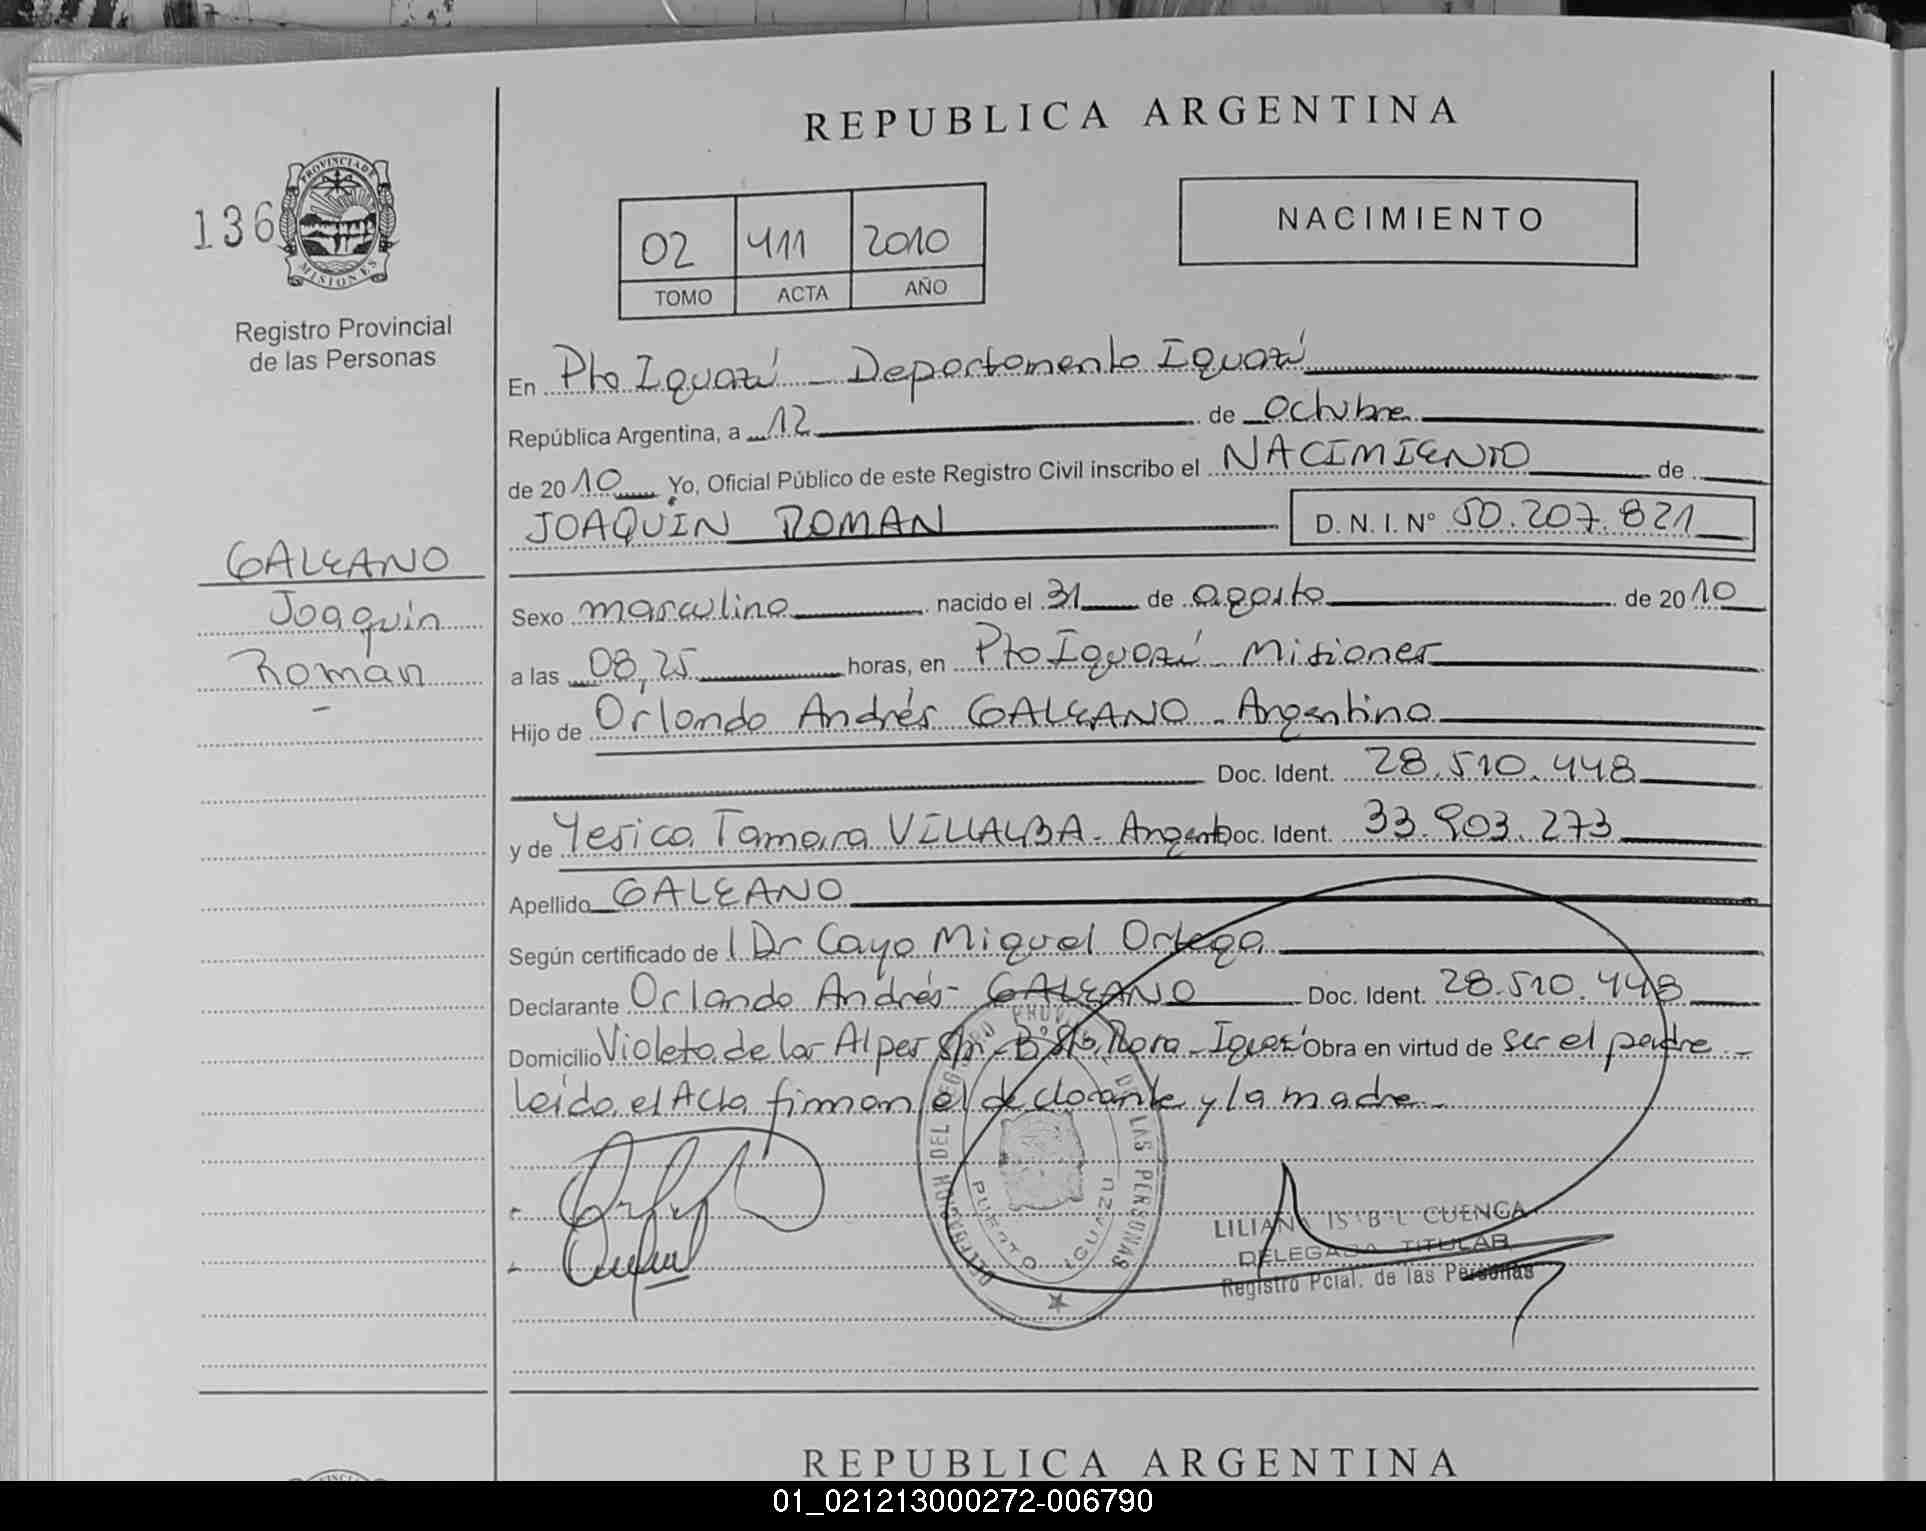 REPUBLICA ARGENTINA
136
PROVINCIA DE MISIONES
Registro Provincial
de las Personas
02 411 2010
TOMO ACTA AÑO
NACIMIENTO
En Pto Iguazú - Departamento Iguazú
República Argentina, a 12 de Octubre
de 2010 Yo, Oficial Público de este Registro Civil inscribo el NACIMIENTO de
JOAQUIN ROMAN D. N. I. N° 50.207.821
GALEANO
Joaquín
Román
Sexo masculino nacido el 31 de agosto de 2010
a las 08,25 horas, en Pto Iguazú - Misiones
Hijo de Orlando Andrés GALEANO - Argentino
Doc. Ident. 28.510.448
y de Yesica Tamara VILLALBA - Argent Doc. Ident. 33.903.273
Apellido GALEANO
Según certificado de l Dr Cayo Miguel Ortega
Declarante Orlando Andrés GALEANO Doc. Ident. 28.510.448
Domicilio Violeta de los Alpes S/n - B° Sta Rosa - Iguazú Obra en virtud de ser el padre -
leída el Acta firman el declarante y la madre -
DEL REGISTRO PROVINCIAL DE LAS PERSONAS
PUERTO IGUAZU
LILIANA ISABEL CUENCA
DELEGADA TITULAR
Registro Pcial. de las Personas
REPUBLICA ARGENTINA
01_021213000272-006790